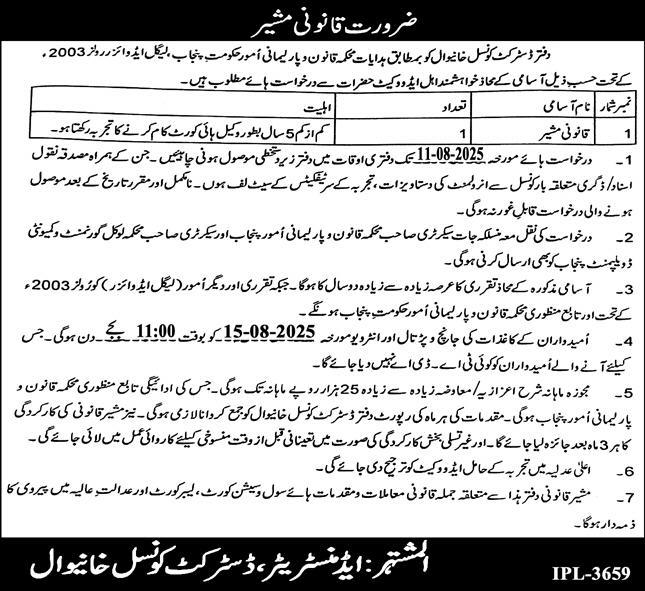 ضرورت قانونی مشیر
دفتر ڈسٹرکٹ کونسل خانیوال کو بمطابق ہدایات محکمہ قانون و پارلیمانی اُمور حکومت پنجاب، لیگل ایڈوائزر رولز 2003ء
کے تحت حسب ذیل آسامی کے محاذ خواہشمند اہل ایڈووکیٹ حضرات سے درخواست ہائے مطلوب ہیں۔
نمبر شمار نام آسامی تعداد اہلیت
1 قانونی مشیر 1 کم از کم 5 سال بطور وکیل ہائی کورٹ کام کرنے کا تجربہ رکھتا ہو۔
1۔ درخواست ہائے مورخہ 11-08-2025 تک دفتری اوقات میں دفتر زیر دستخطی موصول ہونی چاہئیں۔ جن کے ہمراہ مصدقہ نقول
اسناد/ڈگری متعلقہ بار کونسل سے انرولمنٹ کی دستاویزات، تجربہ کے سرٹیفکیٹس کے سیٹ لف ہوں۔ نامکمل اور مقررہ تاریخ کے بعد موصول
ہونے والی درخواست قابل غور نہ ہوگی۔
2۔ درخواست کی نقل معہ منسلکہ جات سیکرٹری صاحب محکمہ قانون و پارلیمانی اُمور پنجاب اور سیکرٹری صاحب محکمہ لوکل گورنمنٹ و کمیونٹی
ڈویلپمنٹ پنجاب کو بھی ارسال کرنی ہوگی۔
3۔ آسامی مذکورہ کے محاذ تقرری کا عرصہ زیادہ سے زیادہ دو سال کا ہوگا۔ جبکہ تقرری اور دیگر اُمور (لیگل ایڈوائزر) کو رولز 2003ء
کے تحت اور تابع منظوری محکمہ قانون و پارلیمانی اُمور حکومت پنجاب ہونگے۔
4۔ اُمیدواران کے کاغذات کی جانچ و پڑتال اور انٹرویو مورخہ 15-08-2025 کو بوقت 11:00 بجے دن ہوگی۔ جس
کیلئے آنے والے اُمیدواران کو کوئی ٹی اے۔ ڈی اے نہیں دیا جائے گا۔
5۔ مجوزہ ماہانہ شرح اعزازیہ/معاوضہ زیادہ سے زیادہ 25 ہزار روپے ماہانہ تک ہوگی۔ جس کی ادائیگی تابع منظوری محکمہ قانون و
پارلیمانی اُمور پنجاب ہوگی۔ مقدمات کی ہر ماہ کی رپورٹ دفتر ڈسٹرکٹ کونسل خانیوال کو جمع کروانا لازمی ہوگی۔ نیز مشیر قانونی کی کارکردگی
کا ہر 3 ماہ بعد جائزہ لیا جائے گا۔ اور غیر تسلی بخش کارکردگی کی صورت میں تعیناتی قبل از وقت منسوخی کیلئے کاروائی عمل میں لائی جائے گی۔
6۔ اعلیٰ عدلیہ میں تجربہ کے حامل ایڈووکیٹ کو ترجیح دی جائے گی۔
7۔ مشیر قانونی دفتر ہذا سے متعلقہ جملہ قانونی معاملات و مقدمات ہائے سول و سیشن کورٹ، لیبر کورٹ اور عدالت عالیہ میں پیروی کا
ذمہ دار ہوگا۔
المشتہر: ایڈمنسٹریٹر، ڈسٹرکٹ کونسل خانیوال
IPL-3659